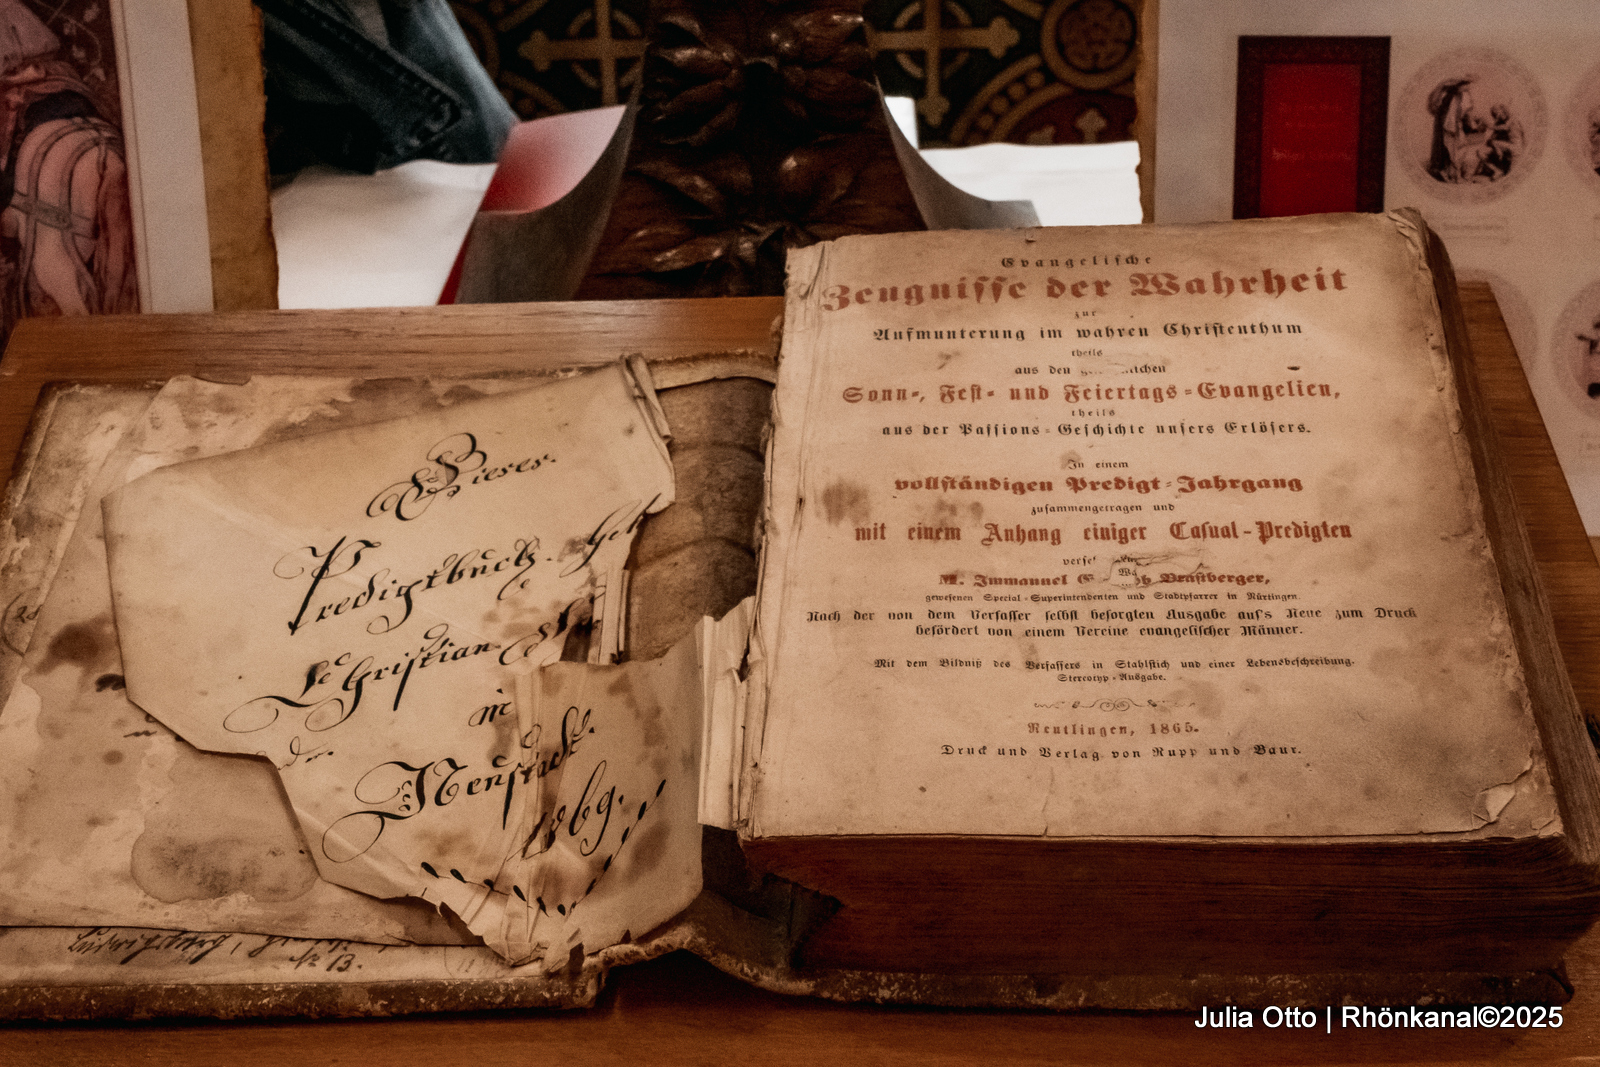 Dieses
Predigtbuch. Geh
Christian
in
Neustadt.
1869.
Ludwigsburg,
№ 13.
Evangelische
Zeugnisse der Wahrheit
zur
Aufmunterung im wahren Christenthum
theils
aus den
Sonn-, Fest- und Feiertags-Evangelien,
theils
aus der Passions-Geschichte unsers Erlösers.
In einem
vollständigen Predigt-Jahrgang
zusammengetragen und
mit einem Anhang einiger Casual-Predigten
M. Immanuel G Brastberger,
gewesenen Special-Superintendenten und Stadtpfarrer in Nürtingen.
Nach der von dem Verfasser selbst besorgten Ausgabe auf's Neue zum Druck
befördert von einem Vereine evangelischer Männer.
Mit dem Bildniß des Verfassers in Stahlstich und einer Lebensbeschreibung.
Stereotyp-Ausgabe.
Reutlingen, 1865.
Druck und Verlag von Rupp und Baur.
Julia Otto | Rhönkanal©2025